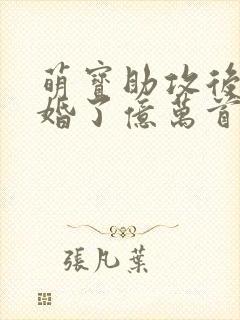 萌寶助攻後
婚了億萬首
張凡葉